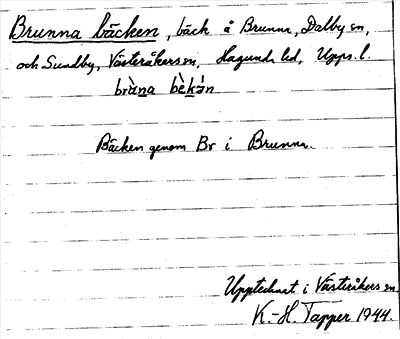 Brunna bäcken, bäck å Brunna, Dalby sn,
och Sundby, Västeråkers sn, Hagunda hd, Upps. l.
brùna bèkə́n
Bäcken genom Br i Brunna.
Upptecknat i Västeråkers sn
K.-H. Tapper 1944.